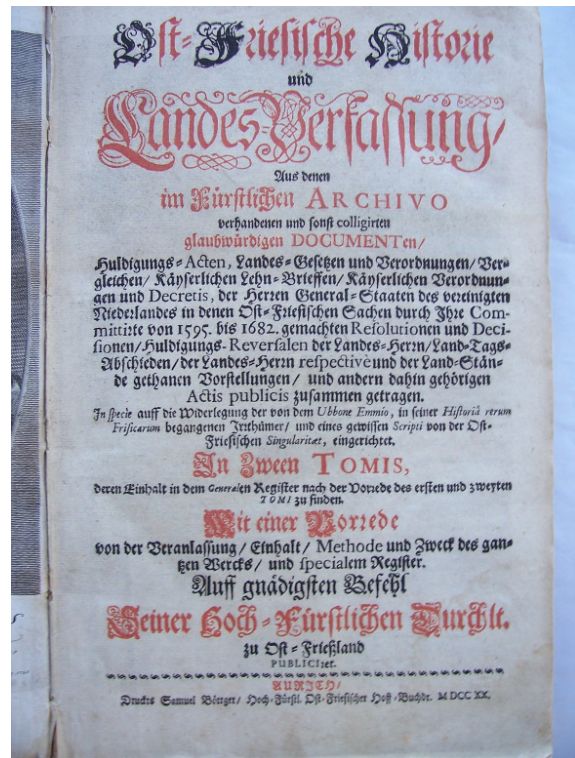 Ost-Friesische Historie
und
Landes-Verfassung/
Aus denen
im Fürstlichen ARCHIVO
verhandenen und sonst colligirten
glaubwürdigen DOCUMENTen/
Huldigungs-Acten, Landes-Gesetzen und Verordnungen/ Ver-
gleichen/ Käyserlichen Lehn-Brieffen/ Käyserlichen Verordnun-
gen und Decretis, der Herren General-Staaten des vereinigten
Niederlandes in denen Ost-Friesischen Sachen durch Ihre Com-
mittirte von 1595. bis 1682. gemachten Resolutionen und Deci-
sionen/ Huldigungs-Reversalen der Landes-Herrn/ Land-Tags-
Abschieden/ der Landes-Herrn respectivè und der Land-Stän-
de gethanen Vorstellungen/ und andern dahin gehörigen
Actis publicis zusammen getragen.
In specie auff die Widerlegung der von dem Ubbone Emmio, in seiner Historiâ rerum
Frisicarum begangenen Irrthümer/ und eines gewissen Scripti von der Ost-
Friesischen Singularitæt, eingerichtet.
In Zween TOMIS,
deren Einhalt in dem Generalen Register nach der Vorrede des ersten und zweyten
TOMI zu finden.
Mit einer Vorrede
von der Veranlassung/ Einhalt/ Methode und Zweck des gan-
tzen Wercks/ und specialem Register.
Auff gnädigsten Befehl
Seiner Hoch-Fürstlichen Durchlt.
zu Ost-Frießland
PUBLICIret.
AURICH/
Druckts Samuel Böttger/ Hoch-Fürstl. Ost-Friesischer Hoff-Buchdr. M DCC XX.